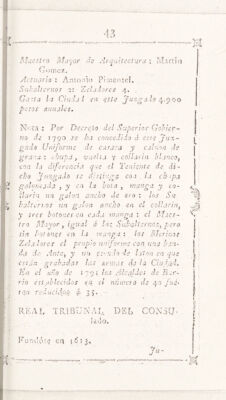 43
Maestro Mayor de Arquitectura: Martin
Gomez.
Actuario: Antonio Pimentel.
Subalternos 21 Zeladores 4.
Gasta la Ciudad en este Juzgado 4.900
pesos anuales.
NOTA: Por Decreto del Superior Gobier-
no de 1790 se ha concedido á este Juz-
gado Uniforme de casaca y calzon de
grana: chupa, vuelta y collarin blanco,
con la diferencia que el Teniente de di-
cho Juzgado se distinga con la chupa
galoneada, y en la bota, manga y co-
llarin un galon ancho de oro: los Su-
balternos un galon ancho en el collarin,
y tres botones en cada manga: el Maes-
tro Mayor, igual á los Subalternos, pero
sin botones en la manga: los Merinos
Zeladores el propio uniforme con una ban-
da de Ante, y un escudo de laton en que
están grabadas las armas de la Ciudad.
En el año de 1791 los Alcaldes de Bar-
rio establecidos en el número de 40 fue-
ron reducidos á 35.
REAL TRIBUNAL DEL CONSU-
lado.
Fundóse en 1613.
Ju-